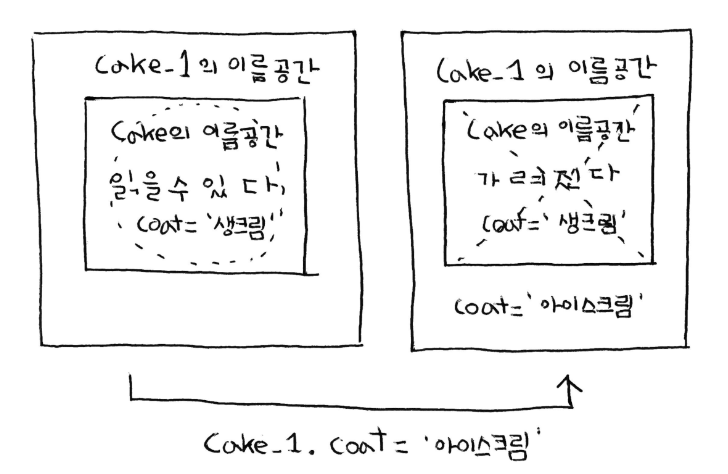 Cake_1의 이름공간
Cake의 이름공간
읽을 수 있다,
coat='생크림'
Cake_1의 이름공간
Cake의 이름공간
가려진다
coat='생크림'
coat='아이스크림'
Cake_1.coat='아이스크림'